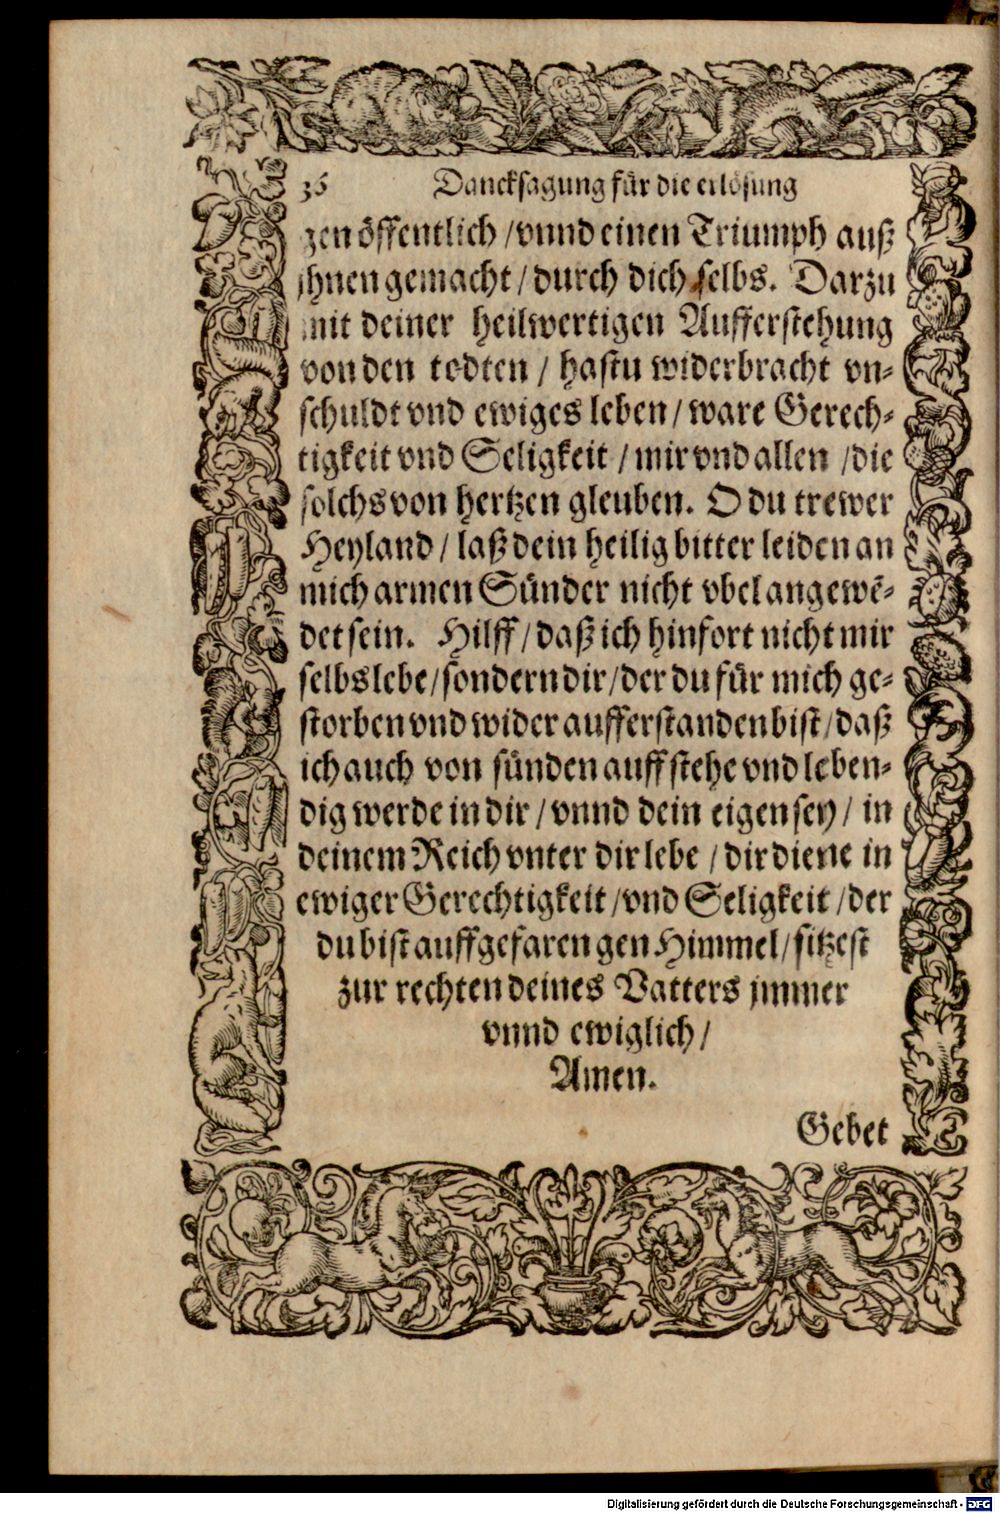 36 Dancksagung für die erlösung
gen öffentlich / vnnd einen Triumph auß
jhnen gemacht / durch dich selbs. Darzu
mit deiner heilwertigen Aufferstehung
von den todten / hastu widerbracht vn-
schuldt vnd ewiges leben / ware Gerech-
tigkeit vnd Seligkeit / mir vnd allen / die
solchs von hertzen gleuben. O du trewer
Heyland / laß dein heilig bitter leiden an
mich armen Sünder nicht vbel angewē-
det sein. Hilff / daß ich hinfort nicht mir
selbs lebe / sondern dir / der du für mich ge-
storben vnd wider aufferstanden bist / daß
ich auch von sünden auffstehe vnd leben-
dig werde in dir / vnnd dein eigen sey / in
deinem Reich vnter dir lebe / dir diene in
ewiger Gerechtigkeit / vnd Seligkeit / der
du bist auffgefaren gen Himmel / sitzest
zur rechten deines Vatters jmmer
vnnd ewiglich /
Amen.
Gebet
Digitalisierung gefördert durch die Deutsche Forschungsgemeinschaft - DFG